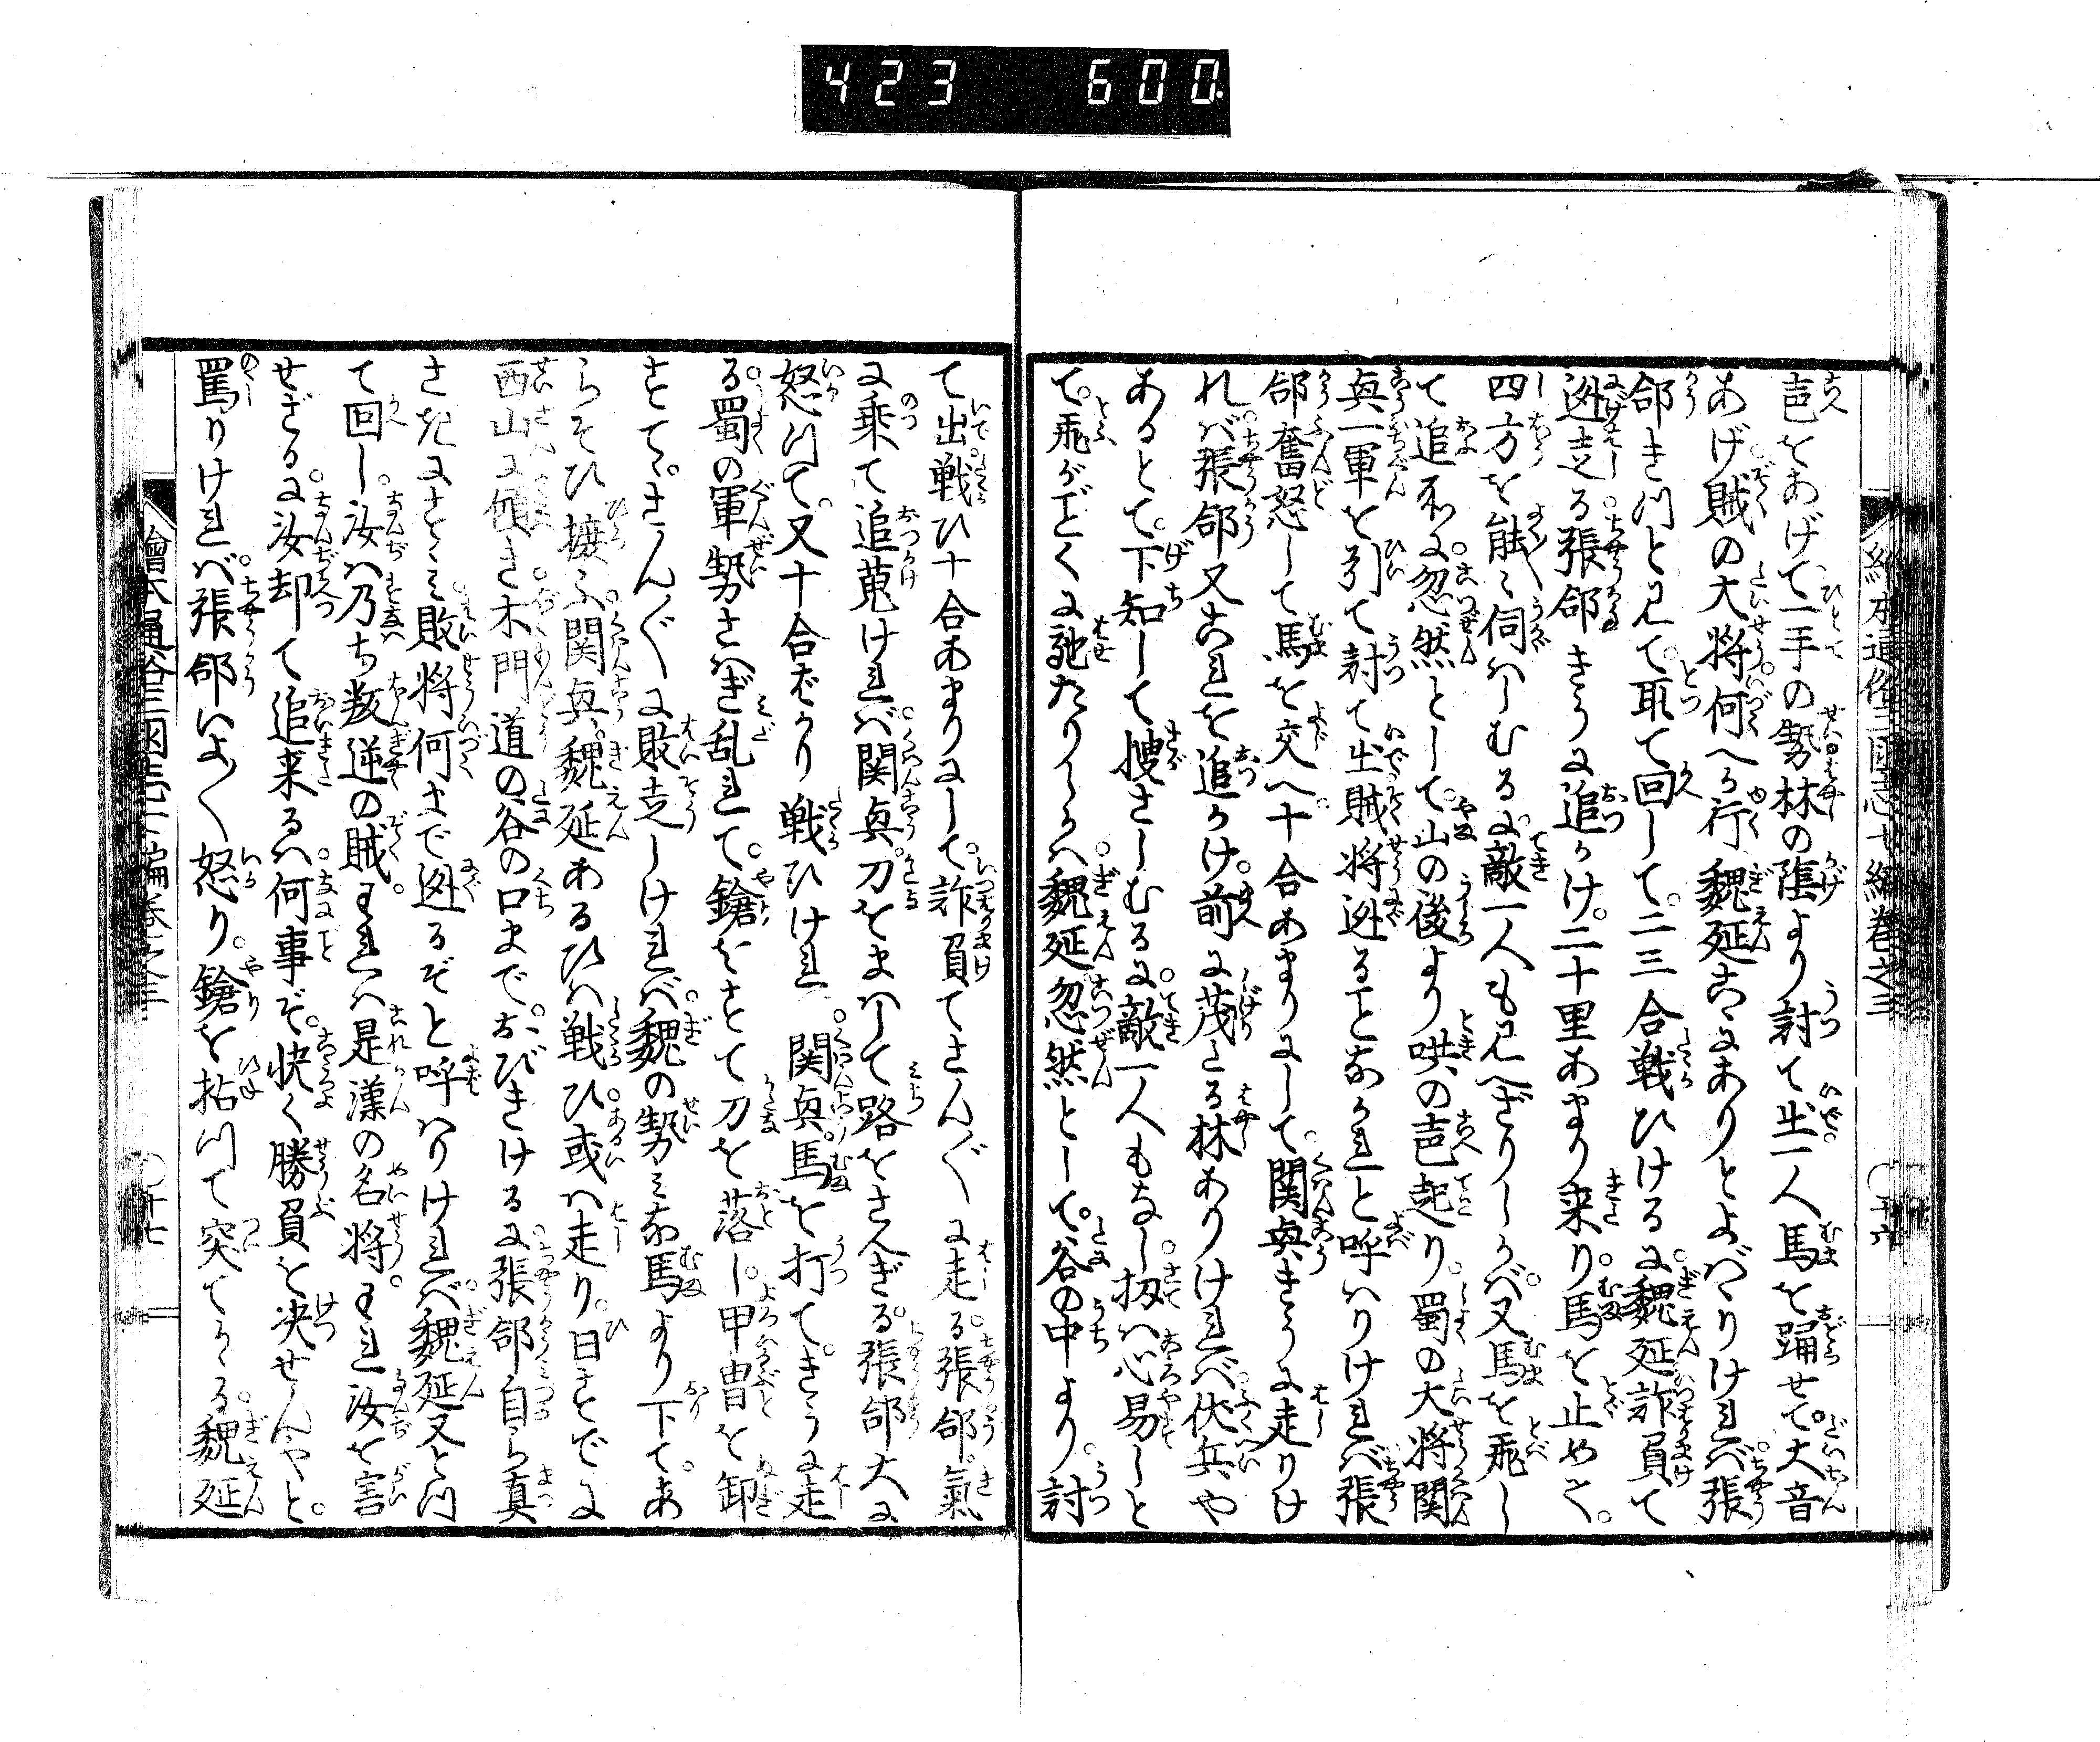 423 600.
繪本通俗三國志七編卷之三
〇十六
声をあげて一手の勢林の陰より討て出一人馬を踊せて大音
あげ賊の大将何へか行魏延爰にありとよばゝりけれバ張
郃きつと見て。取て回して。二三合戦ひけるに。魏延詐負て
迯走る張郃きうに追かけ。二十里あまり来り。馬を止めて。
四方を能々伺ハしむるに。敵一人も見へざりしかバ。又馬を飛し
て追所に忽然として。山の後より哄の声起り。蜀の大将関
興一軍を引て討て出賊将迯ることなかれと呼ハりけれバ張
郃奮怒して馬を交へ十合あまりにして。関興きうに走りけ
れバ張郃又これを追かけ。前に茂たる林ありけれバ伏兵や
あるとて。下知して捜さしむるに。敵一人もなし。扨ハ心易しと
て。飛がごとくに馳たりしかバ。魏延忽然として。谷の中より。討
て出。戦ひ十合あまりにして。詐負てさん〴〵に走る。張郃。氣
に乗て追蒐けれバ。関興。刀をまハして路をさへぎる。張郃大に
怒つて。又十合ばかり戦ひけれバ。関興。馬を打て。きうに走
る。蜀の軍勢さハぎ乱れて。鎗をすて刀を落し。甲冑を卸
すてゝ。さん〴〵に敗走しけれバ。魏の勢ミな馬より下て。あ
らそひ擄ふ。関興。魏延あるひハ戦ひ。或ハ走り。日すでに
西山に傾き。木門道の谷の口まで。おびきけるに。張郃自ら真
さきにすゝミ敗将何まで迯るぞと呼ハりけれバ。魏延又とつ
て回し。汝ハ乃ち叛逆の賊。われハ是漢の名将。われ汝を害
せざるに。汝却て追来るハ。何事ぞ。快く勝負を决せんやと。
罵りけれバ。張郃いよ〳〵怒り。鎗を拈つて突てかゝる。魏延
繪本通俗三国志七編卷之三
〇十七